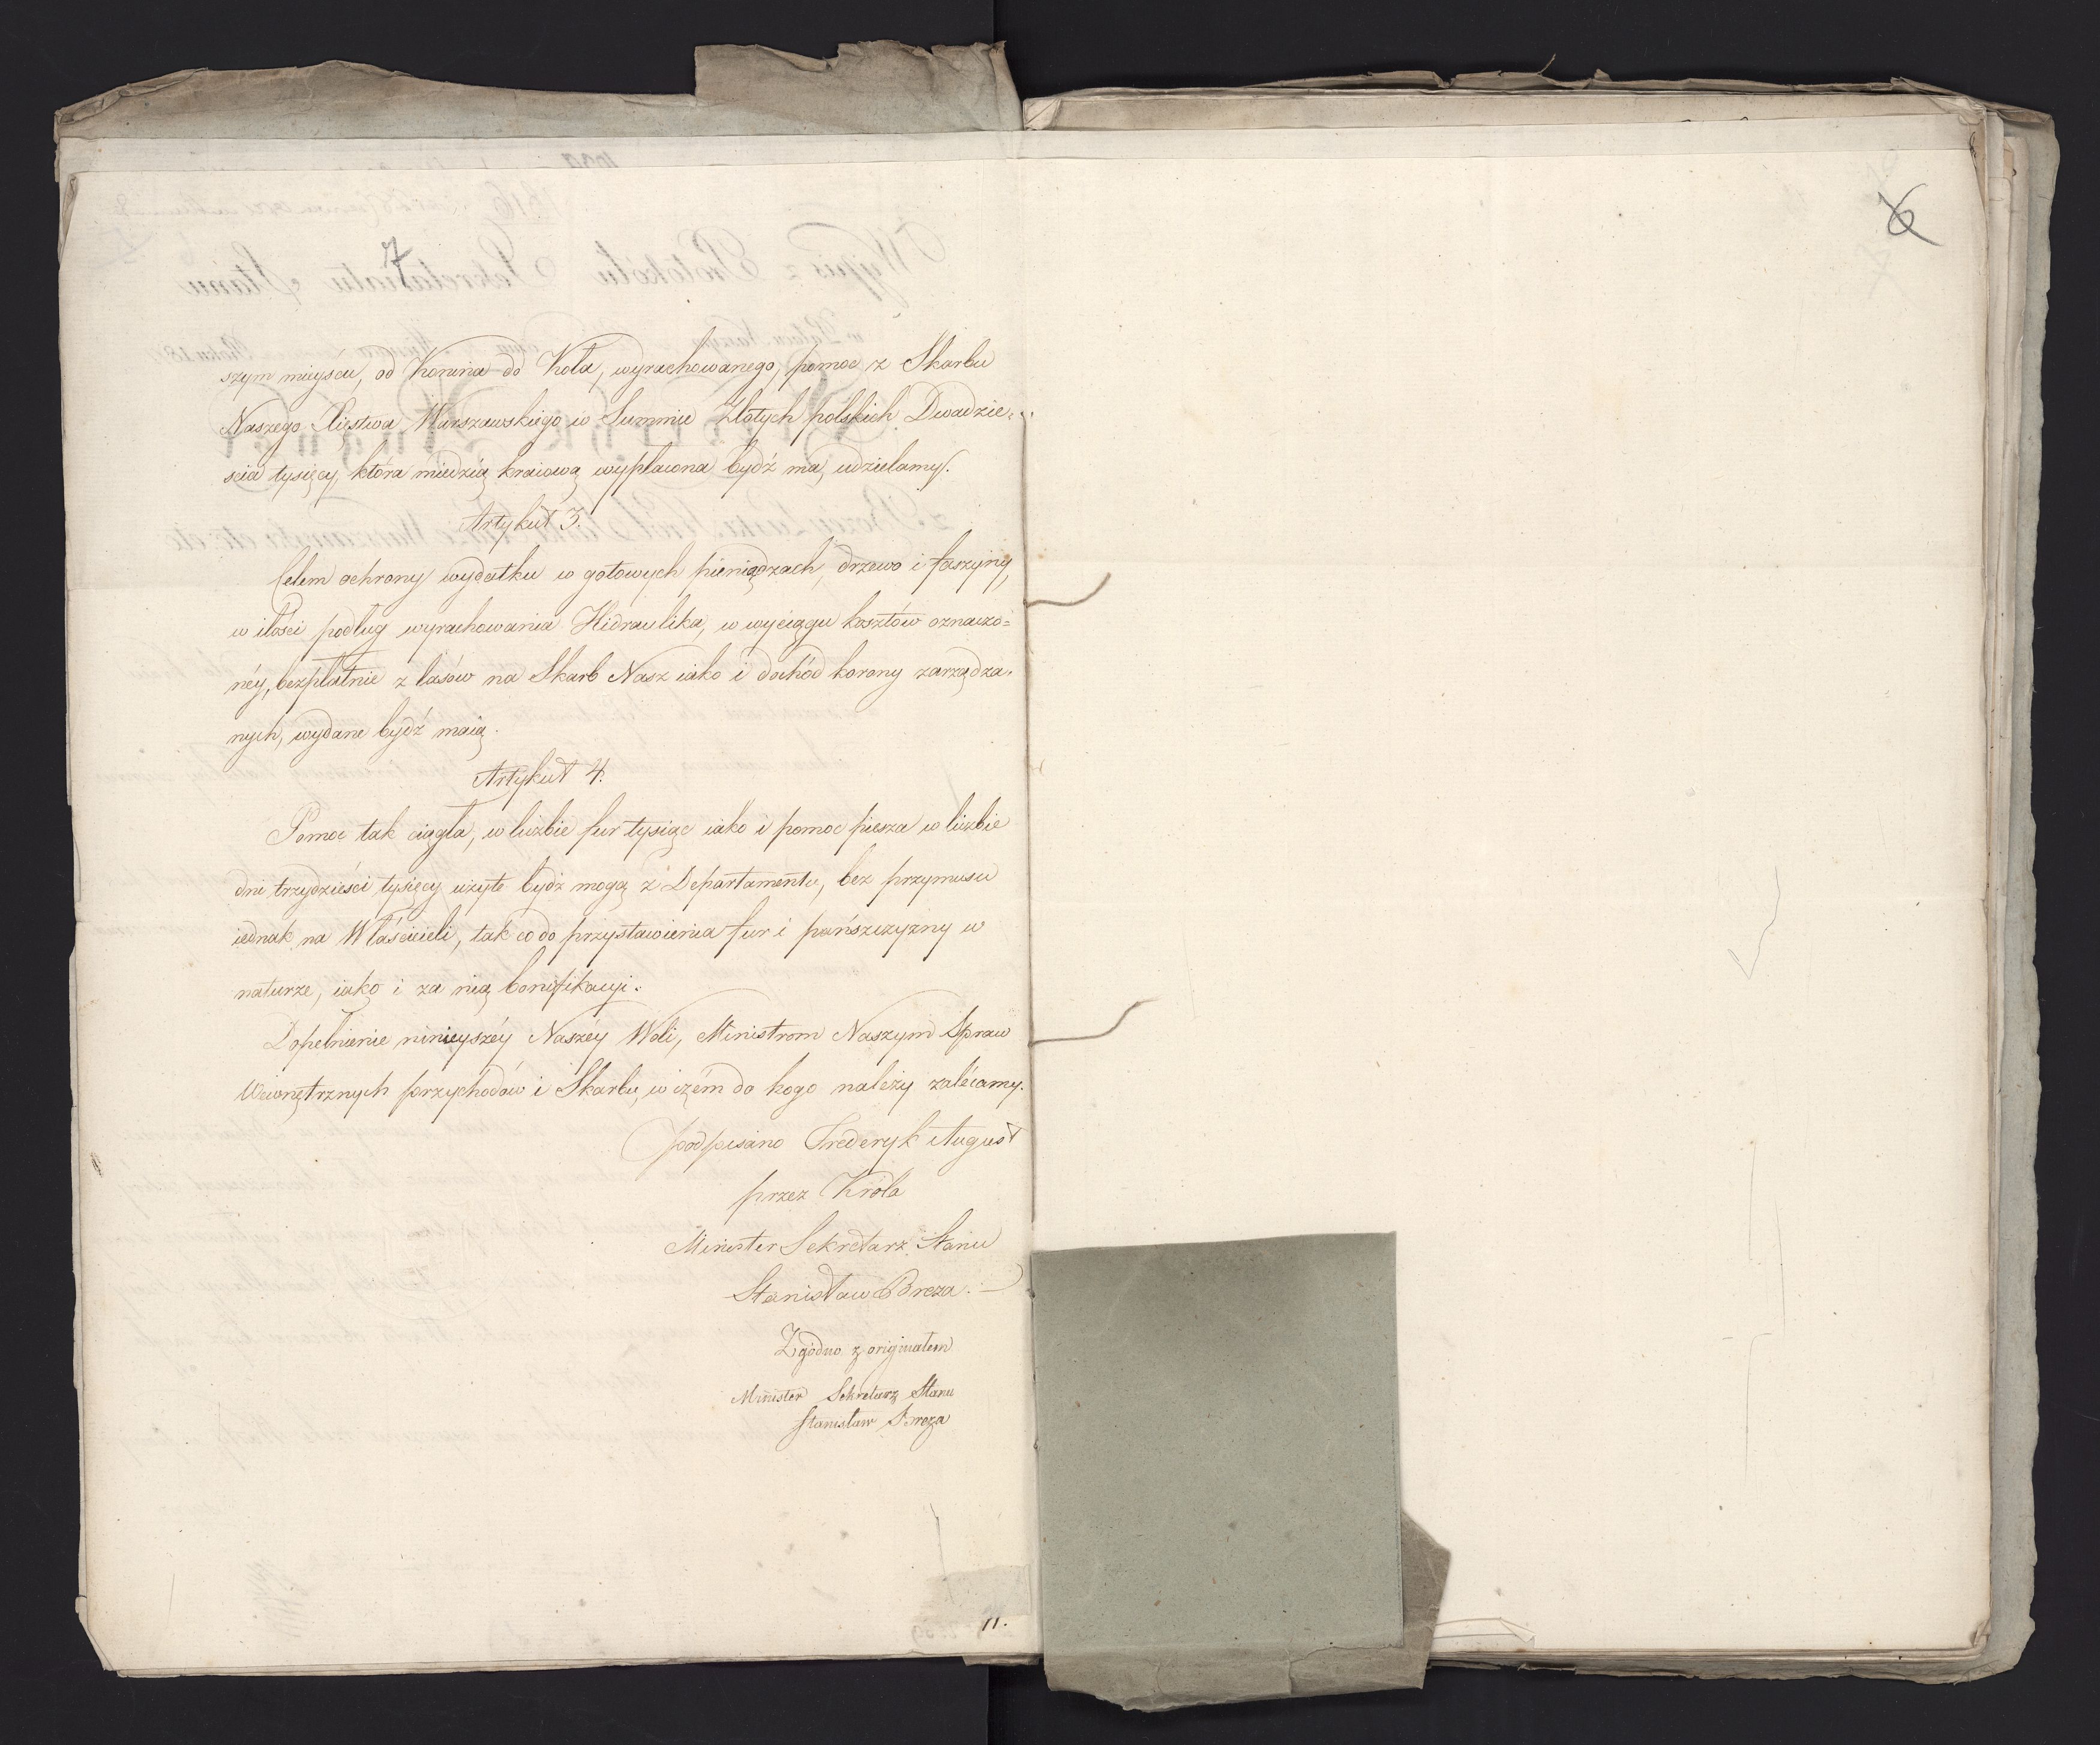 7
szym mieyscu, od Konina do Koła, wyrachowanego, pomoc z Skarbu
Naszego Xięstwa Warszawskiego w Summie Złotych polskich Dwadzie=
scia tysięcy, która miedzią kraiową wypłacona bydź ma, udzielamy.
Artykuł 3.
Celem ochrony wydatku w gotowych pieniądzach, drzewo i faszyny,
w ilości podług wyrachowania Hidraulika, w wyciągu kosztów oznaczo=
néy, bezpłatnie z lasów na Skarb Nasz iako i dochód korony zarządza=
nych, wydane bydź maią.
Artykuł 4.
Pomoc tak ciągła, w liczbie fur tysiąc iako i pomoc piesza w liczbie
dni trzydzieści tysięcy użyte bydź mogą z Departamentu, bez przymusu
iednak na Właścicieli, tak co do przystawienia fur i pańszczyzny w
naturze, iako i za nią bonifikacyi.
Dopełnienie ninieyszéy Naszéy Woli, Ministrom Naszym Spraw
Wewnętrznych przychodów i Skarbu, w czém do kogo należy zalécamy.
podpisano Frederyk August
przez Króla
Minister Sekretarz Stanu
Stanisław Breza.
Zgodno z originałem
Minister Sekretarz Stanu
Stanisław Breza
11.
6